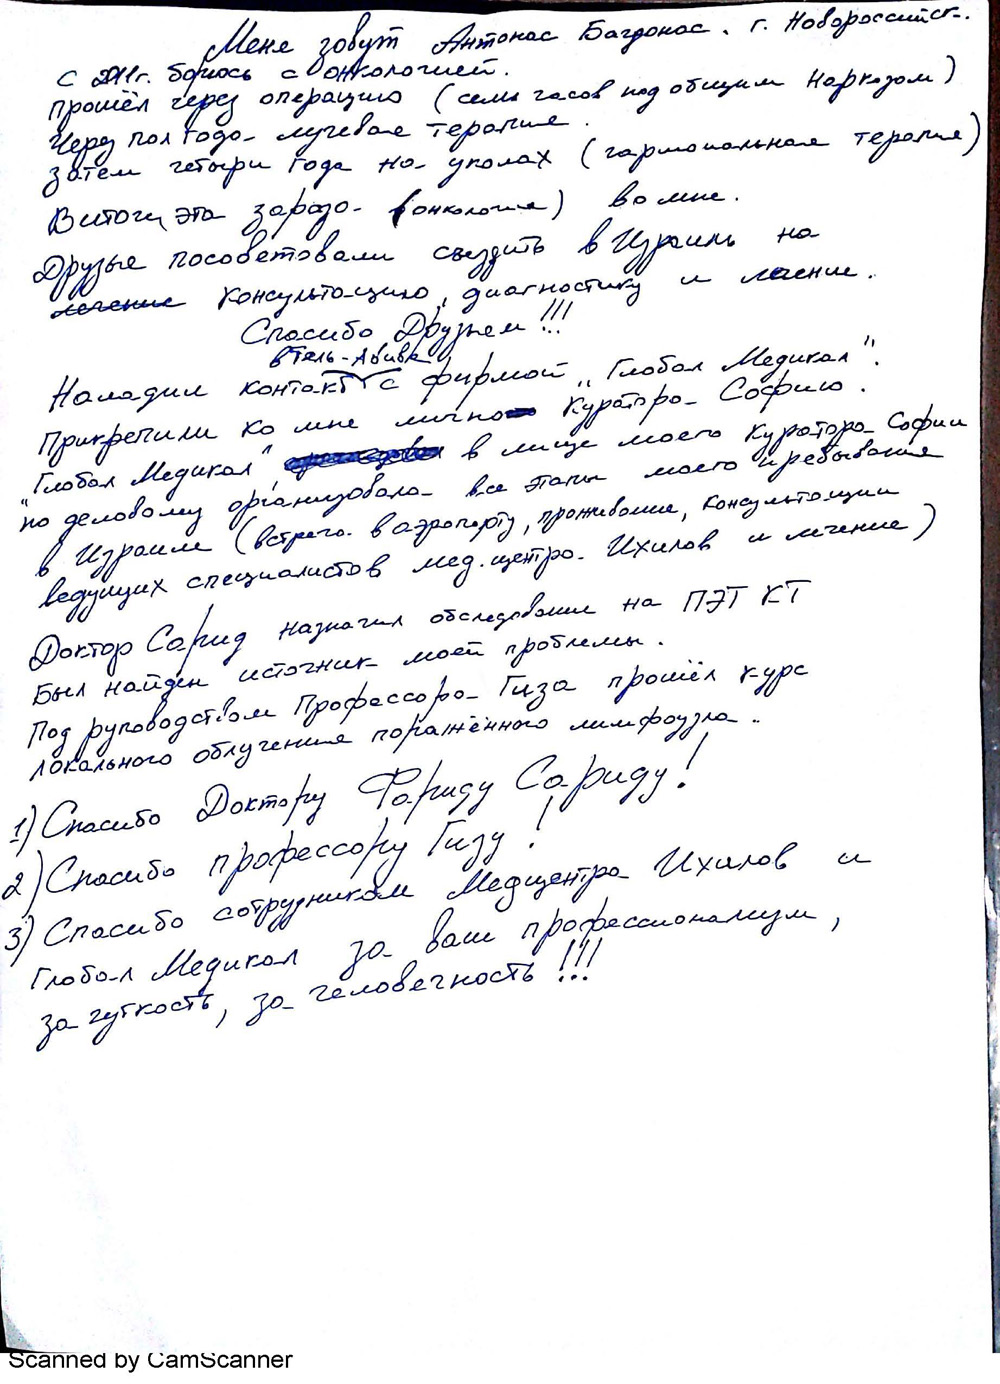 Меня зовут Антонас Багдонас. г. Новороссийск.
С 2011г. борюсь с онкологией.
прошёл через операцию (семь часов под общим наркозом)
Через пол года лучевая терапия.
Затем четыри года на уколах (гармональная терапия)
В итоги, эта зараза (онкология) во мне.
Друзья посоветовали съездить в Израиль на
лечение консультацию, диагностику и лечение.
Спасибо Друзьям!!!
в Тель-Авиве
Наладил контакт с фирмой „Глобал Медикал".
Прикрепили ко мне лично куратора Софию.
"Глобал Медикал" в лице моего куратора Софии
по деловому организовала все этапы моего пребывания
в Израиле (встреча в аэропорту, проживание, консультации
ведущих специалистов мед.центра Ихилов и лечение)
Доктор Сарид назначил обследование на ПЭТ КТ
Был найден источник моей проблемы.
Под руководством Профессора Гиза прошёл курс
локального облучения поражённого лимфоузла..
1) Спасибо Доктору Фариду Сариду!
2) Спасибо профессору Гизу!
3) Спасибо сотрудникам Медицентра Ихилов и
Глобал Медикал за ваш профессионализм,
за чуткость, за человечность!!!
Scanned by CamScanner